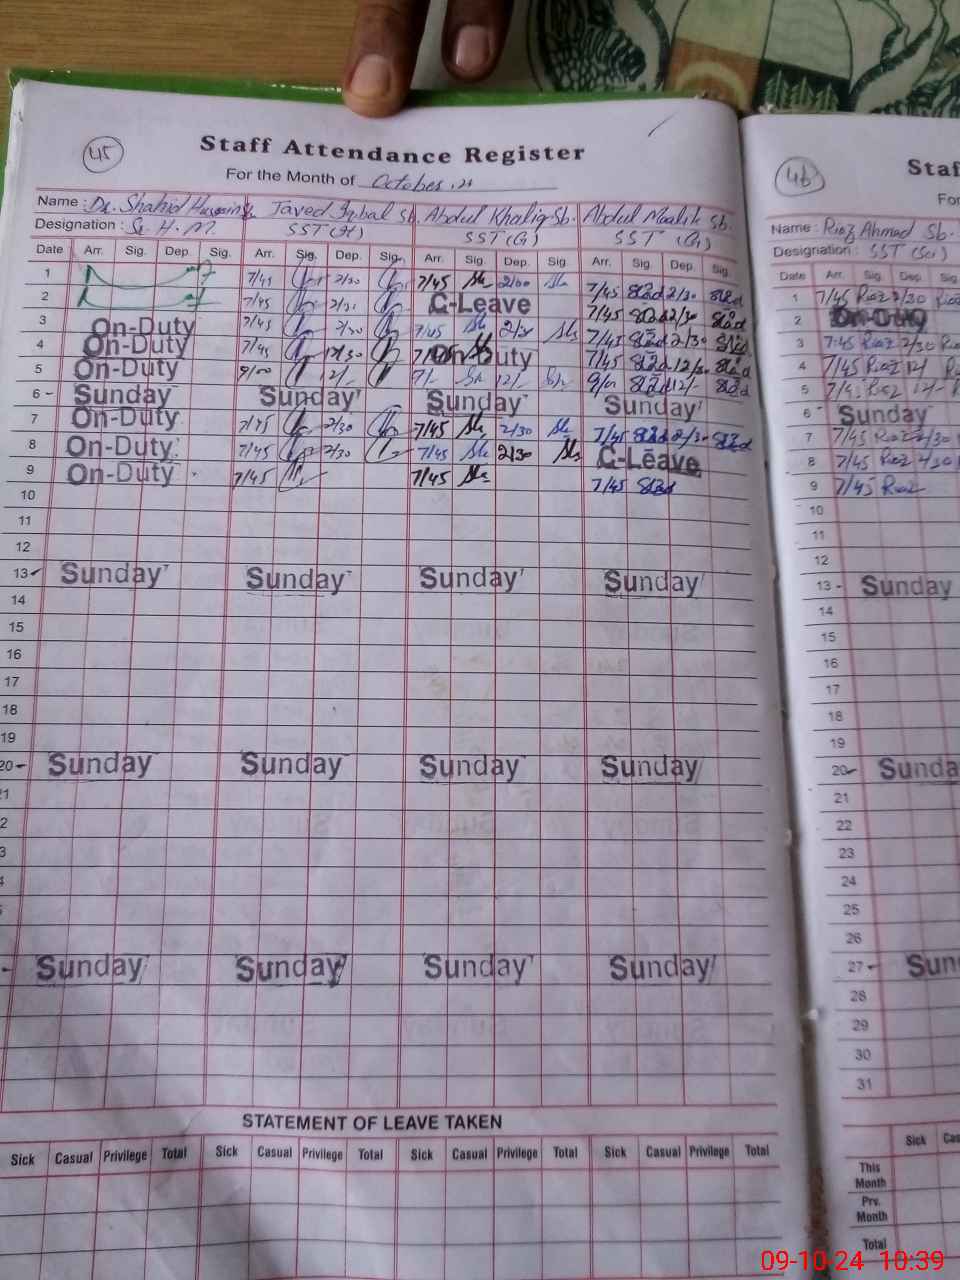 45
Staff Attendance Register
For the Month of October, 24
Name : Dr. Shahid Hussain Javed Iqbal Sb. Abdul Khaliq Sb. Abdul Maalik Sb.
Designation : S. H. M. SST (G) SST (G)
Date Arr. Sig. Dep. Sig. Arr. Sig. Dep. Sig. Arr. Sig. Dep. Sig. Arr. Sig. Dep. Sig.
1 7/45 2/30 7/45 2/30 7/45 2/30
2 7/45 2/30 C-Leave 7/45 2/30
3 On-Duty 7/45 2/30 7/45 2/30 7/45 2/30
4 On-Duty 7/45 12/30 On-Duty 7/45 12/30
5 On-Duty 9/00 12/- 7/- 12/- 9/01 12/-
6 - Sunday Sunday Sunday Sunday
7 On-Duty 7/45 2/30 7/45 2/30 7/45 2/30
8 On-Duty 7/45 2/30 7/45 2/30 C-Leave
9 On-Duty 7/45 7/45 7/45
10
11
12
13 Sunday Sunday Sunday Sunday
14
15
16
17
18
19
20 - Sunday Sunday Sunday Sunday
Sunday Sunday Sunday Sunday
STATEMENT OF LEAVE TAKEN
Sick Casual Privilege Total Sick Casual Privilege Total Sick Casual Privilege Total Sick Casual Privilege Total
46
Staf
For
Name : Riaz Ahmad Sb.
Designation : SST (Sci)
Date Arr. Sig. Dep. Sig.
1 7/45 Riaz 2/30 Riaz
2 On-Duty
3 7:45 Riaz 2/30 Ria
4 7/45 Riaz 12/
5 7/45 Riaz 12/-
6 Sunday
7 7/45 Riaz 2/30
8 7/45 Riaz 2/30
9 7/45 Riaz
10
11
12
13 - Sunday
14
15
16
17
18
19
20 Sunda
21
22
23
24
25
26
27 - Sun
28
29
30
31
Sick Cas
This Month
Prv. Month
Total
09-10-24 10:39